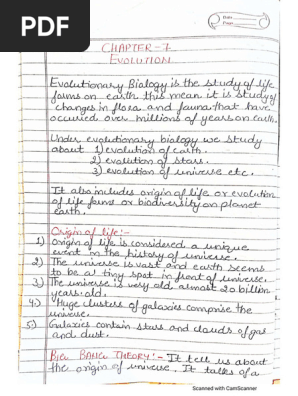 PDF
Date
Page
CHAPTER-7
EVOLUTION
Evolutionary Biology is the study of life
forms on earth this mean it is study of
changes in flora and fauna that have
occured over millions of years on earth.
Under evolutionary biology we study
about 1) evolution of earth.
2) evolution of stars.
3) evolution of universe etc.
It also includes origin of life or evolution
of life forms or biodiversity on planet
earth.
Origin of life:-
1) Origin of life is considered a unique
event in the history of universe.
2) The universe is vast and earth seems
to be a tiny spot in front of universe.
3) The universe is very old almost 20 billion
years old.
4) Huge clusters of galaxies comprise the
universe.
5) Galaxies contain stars and clouds of gas
and dust.
BIG BANG THEORY:- It tell us about
the origin of universe. It talks of a
Scanned with CamScanner